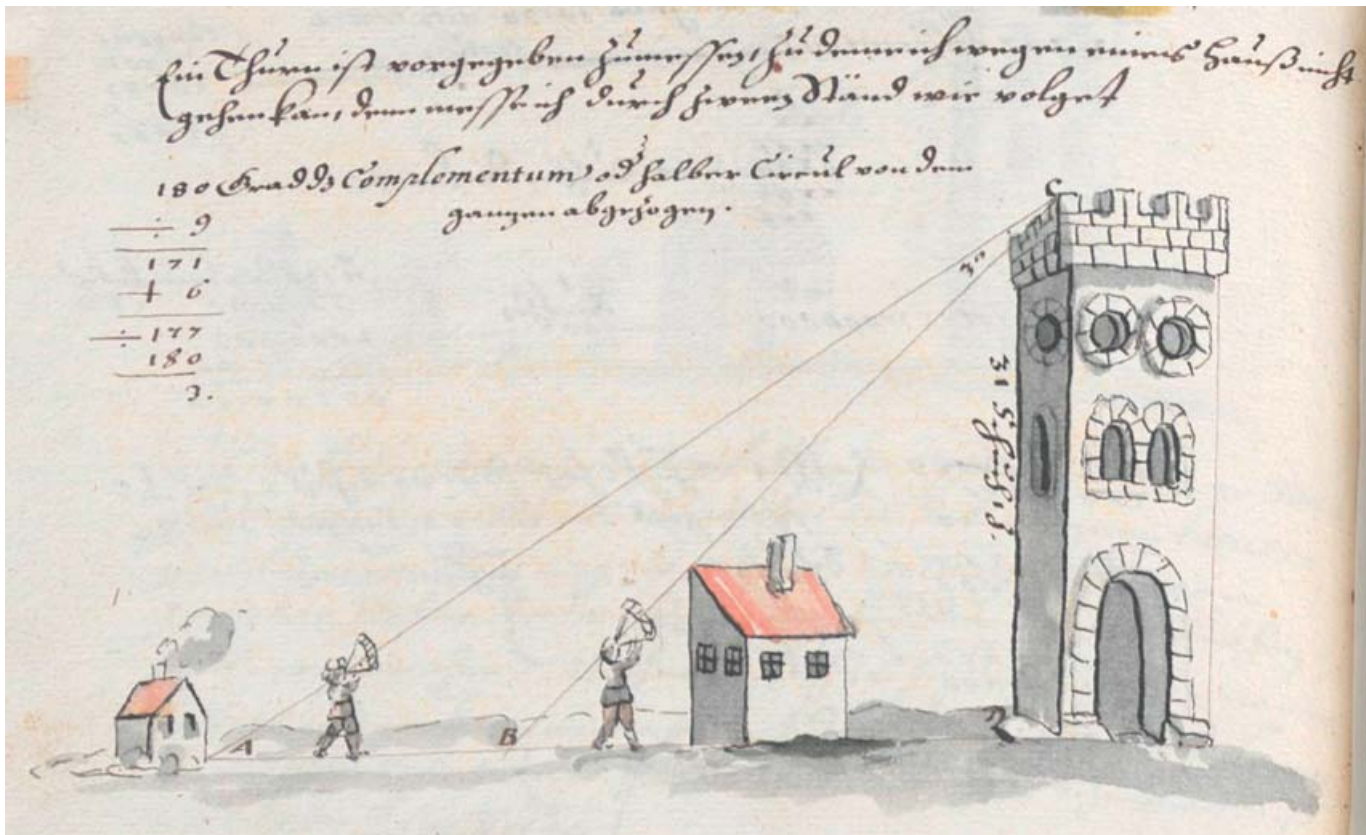 Ein Thurn ist vorgegeben zumessen, zu deme ich wegen eines Hauß nicht
gehen kan, denn messe ich durch zween Ständ wie volget
180 Grad dz Complementum od halber Circul von dem
ganzen abgezogen.
÷ 9
171
+ 6
÷ 177
180
3.
C
3°
31 S. Höhe
A
B